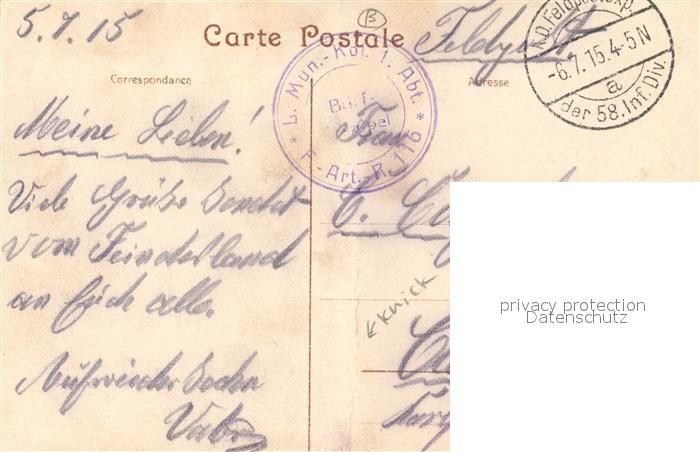 5.7.15
Carte Postale
B
Feldpost
K.D. Feldpostexp.
-6.7.15.4-5N
a
der 58. Inf. Div.
Correspondance
Adresse
* L. Mun.-Kol. 1. Abt. *
Brief-
F.-Art.-R. 116
Meine Lieben!
Frau
Viele Grüße sendet
vom Feindesland
an Euch alle.
C.
KNICK
Aufwiedersehen
Vater
privacy protection
Datenschutz